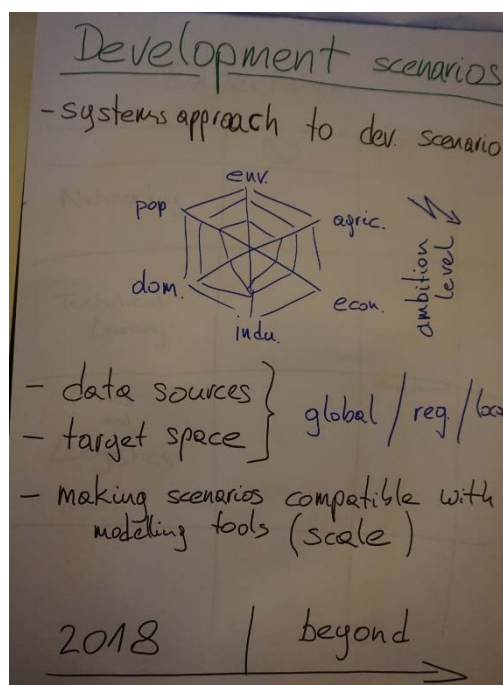 Development scenarios
- systems approach to dev. scenario
env.
pop
agric.
dom.
econ.
indu.
ambition
level
- data sources
- target space
global / reg. / loc
- making scenarios compatible with
modelling tools (scale)
2018 | beyond